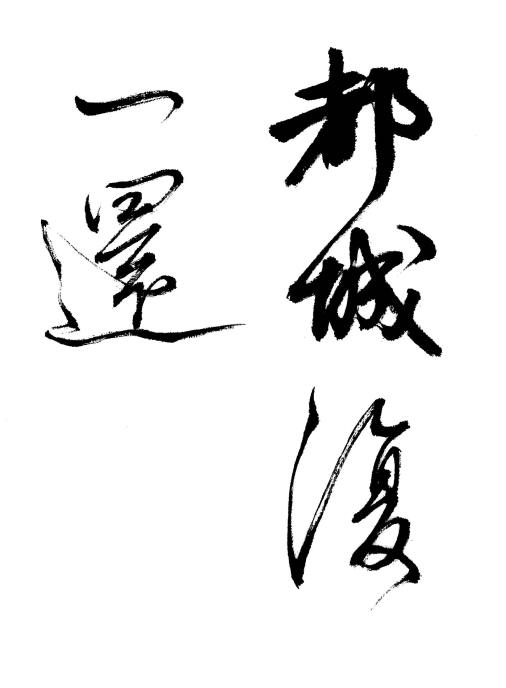 都城復
一還